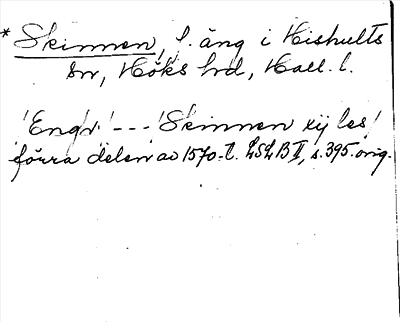 * Skinnen, f. äng i Hishults
sn, Höks hd, Hall. l.
'Engr' --- 'Skinnen xij les'
förra delen av 1570-t. LSLB II, s. 395. orig.